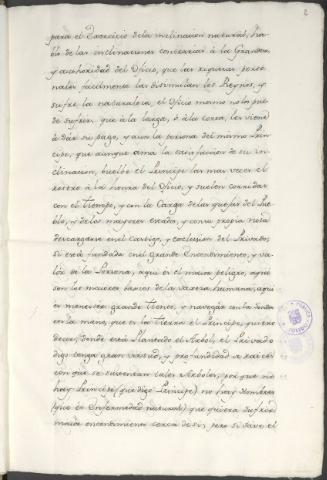 2
para el Exercicio de la inclinacion natural, ha-
blo de las inclinaciones contrarias à la Grandeza
y authoridad del Oficio, que las riquezas perso-
nales facilmente las disimulan los Reynos, y
sufre la naturaleza, el Oficio mismo no lo pue-
de sufrir, que à la larga, ò à la corta, les viene
à dàr su pago, y aun la persona del mismo Prin-
cipe, que aunque ama la satisfacion de su in-
clinacion, buelve el Principe las mas veces el
rostro à la honra del Oficio, y suelen corridas
con el Tiempo, y con la Carga de las quejas del Pue-
blo, y de los mayores criados, y con su propia nota
descargarse en el castigo, y exclusion del Privado.
Si està fundada en el Grande Encantamiento, y va-
lor de la Persona, aqui es el maior peligro, aqui
son los maiores daños de la vaxeza humana, aqui
es menester grande tenor, y navegar con la sonda
en la mano, que es la Tierra el Principe, quiero
decir, donde està Plantado el Arbol, el Privado
digo tenga gran virtud, y profundidad de rai-
ces con que se sustentan tales Arboles, por que no
hay Principe (que digo Principe) no hay hombre
(que es Enfermedad natural) que quiera sufrir
maior entendimiento cerca de si, pero si save el